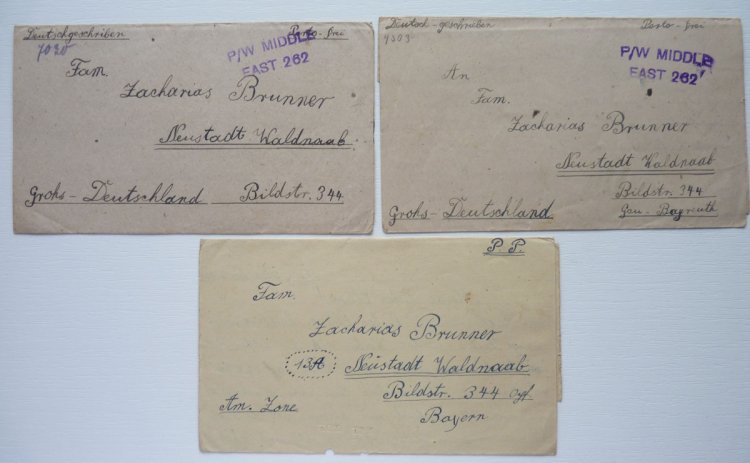 Deutschgeschriben Porto-frei
7020
P/W MIDDLE
EAST 262
Fam.
Zacharias Brunner
Neustadt Waldnaab
Grohs-Deutschland Bildstr. 344
Deutsch-geschrieben Porto-frei
4303
P/W MIDDLE
EAST 262
An
Fam.
Zacharias Brunner
Neustadt Waldnaab
Bildstr. 344
Grohs-Deutschland Gau-Bayreuth
P. P.
Fam.
Zacharias Brunner
13A Neustadt Waldnaab
Bildstr. 344
Am. Zone
Bayern